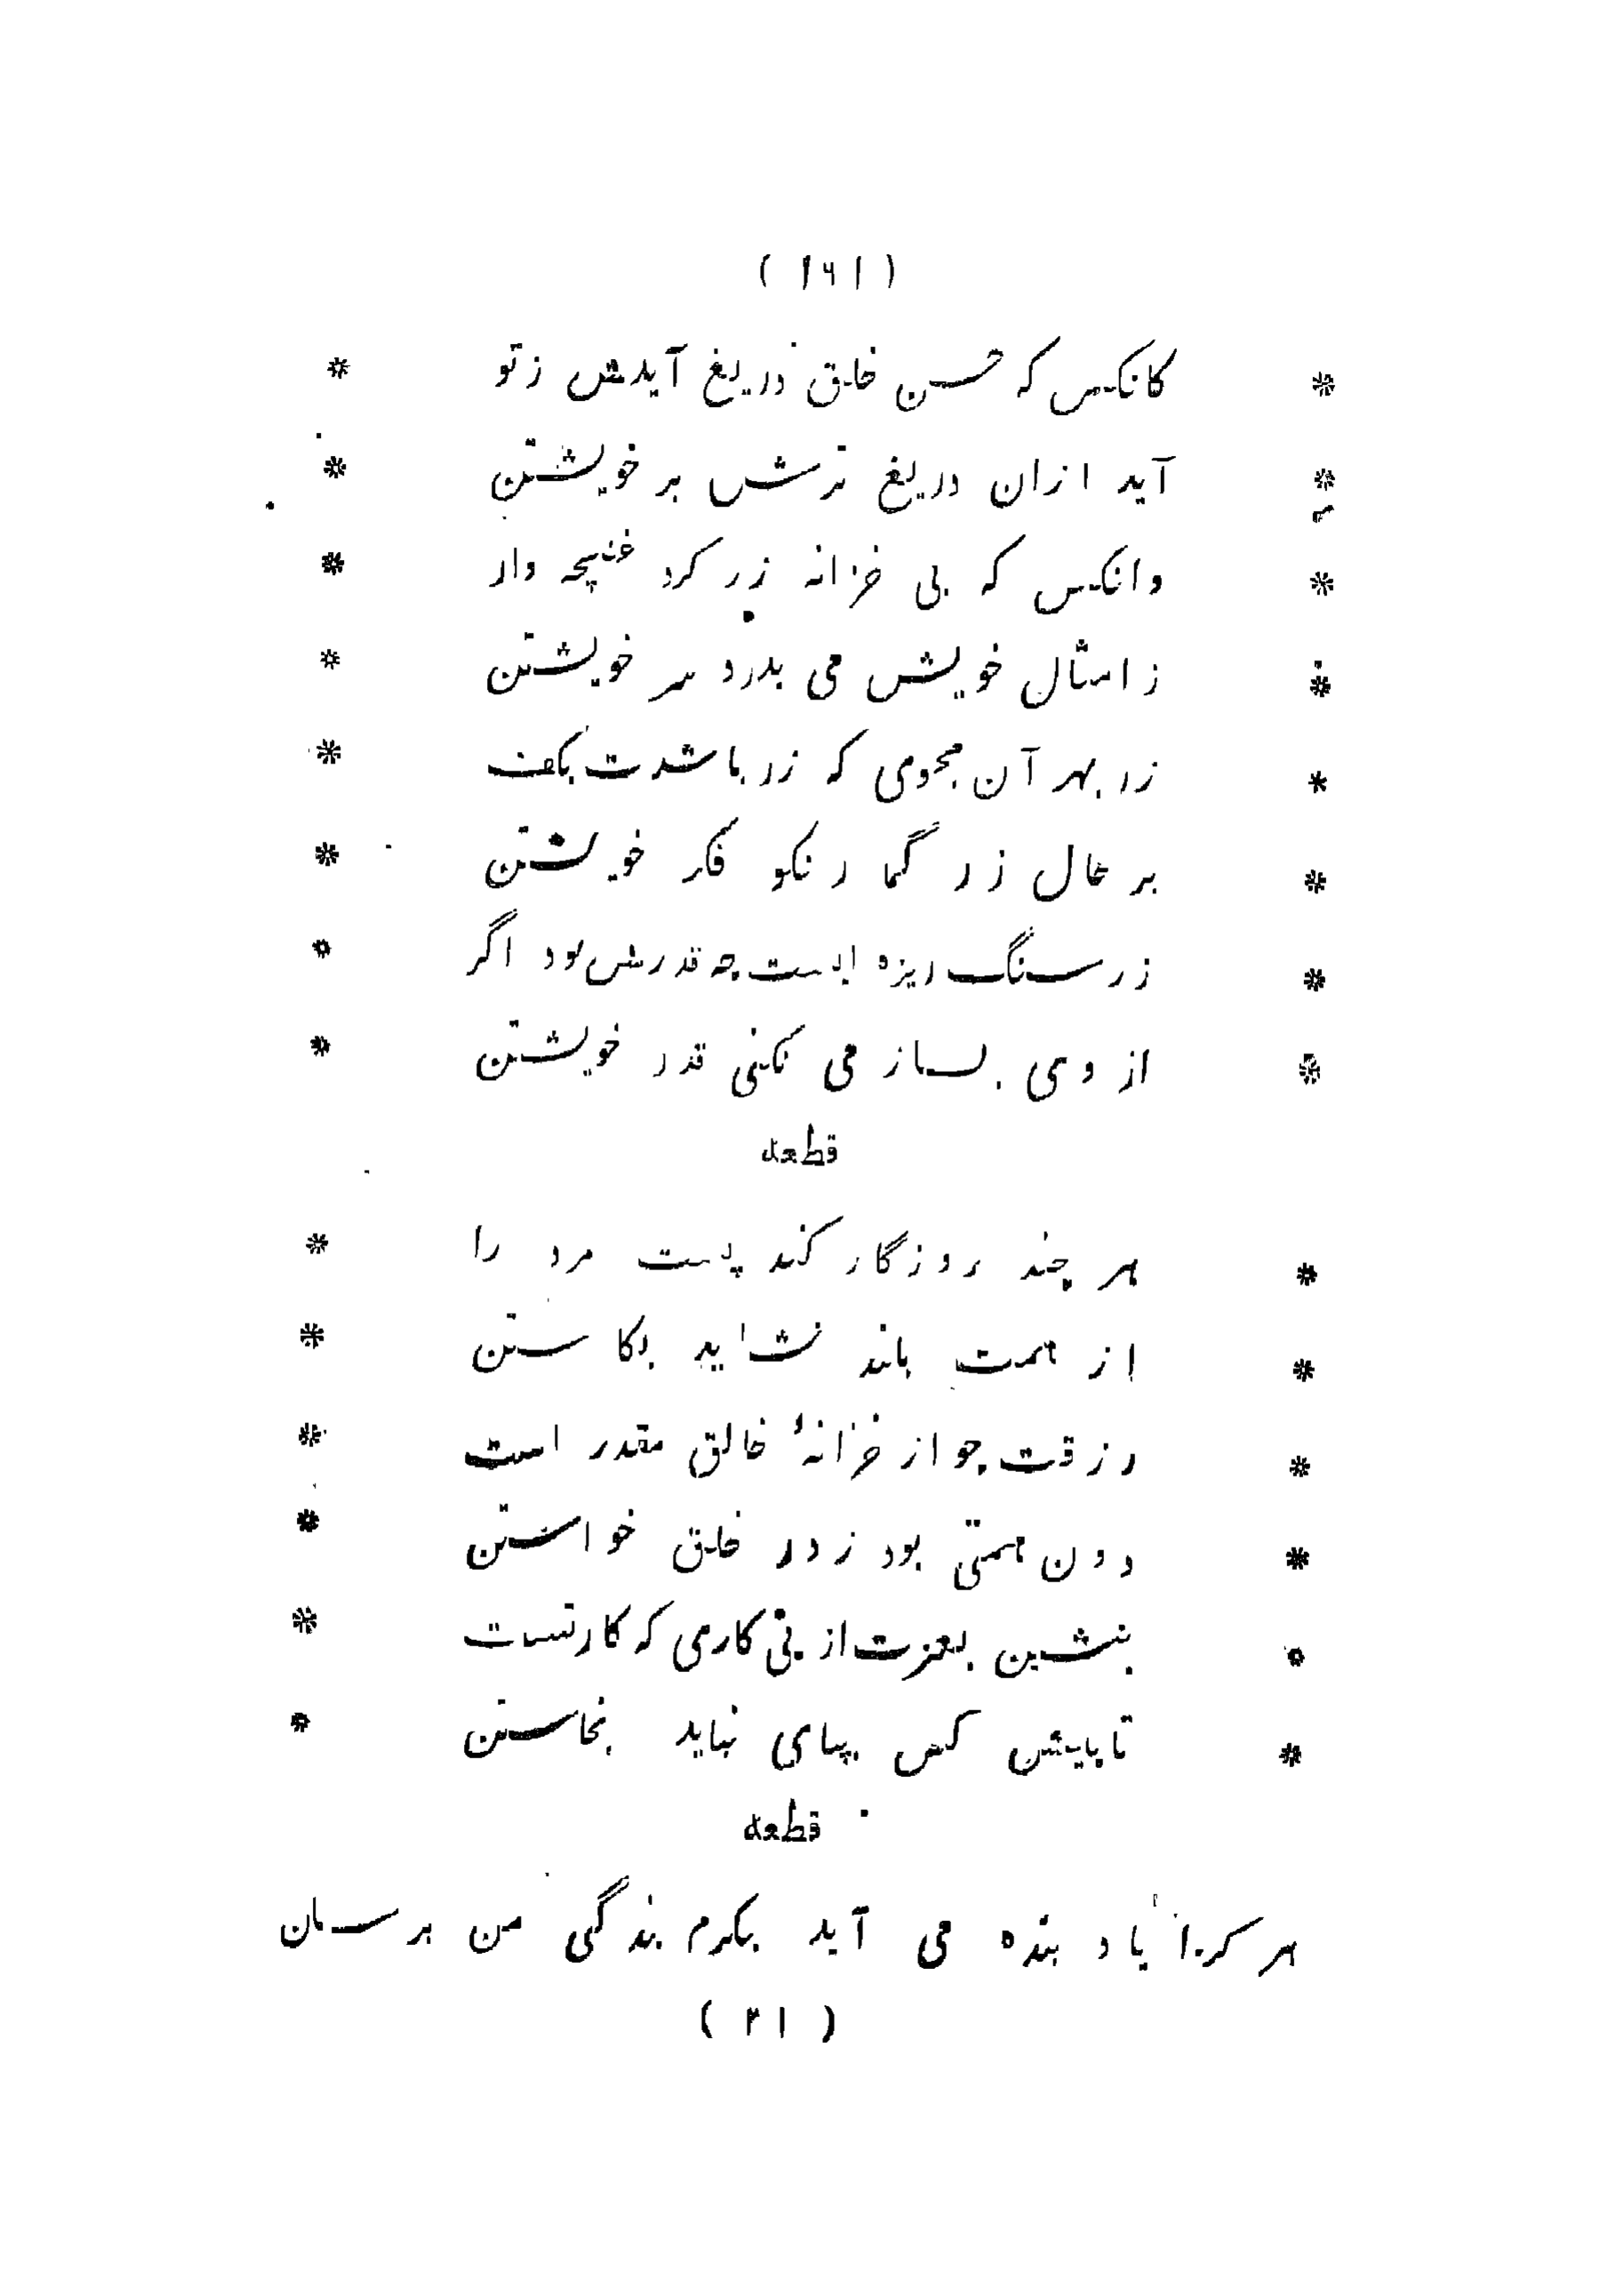 ( ۱۶۱ )
* کانکس که حسن خلق دریغ آیدش ز تو *
* آید ازان دریغ ترش بر خویشتن *
* وانکس که بی خزانه زر کرد غنچه وار *
* ز امثال خویش می بدرد سر خویشتن *
* زر بهر آن مجوی که زر باشدت بکف *
* بر حال زر گمار نکو فکر خویشتن *
* زر سنگ ریزه ایست چه قدرش بود اگر *
* از وی بساز می نکنی قدر خویشتن *
قطعه
* هر چند روزگار کند پست مرد را *
* از همت بلند نشاید بکاستن *
* رزقت چو از خزانهٔ خالق مقدر است *
* دون همتی بود ز در خلق خواستن *
* بنشین بعزت از پی کاری که کار تست *
* تا پیش کس بپای نباید بخاستن *
قطعه
هر کرا یاد بنده می آید بکرم بندگی من برسان
( ۲۱ )